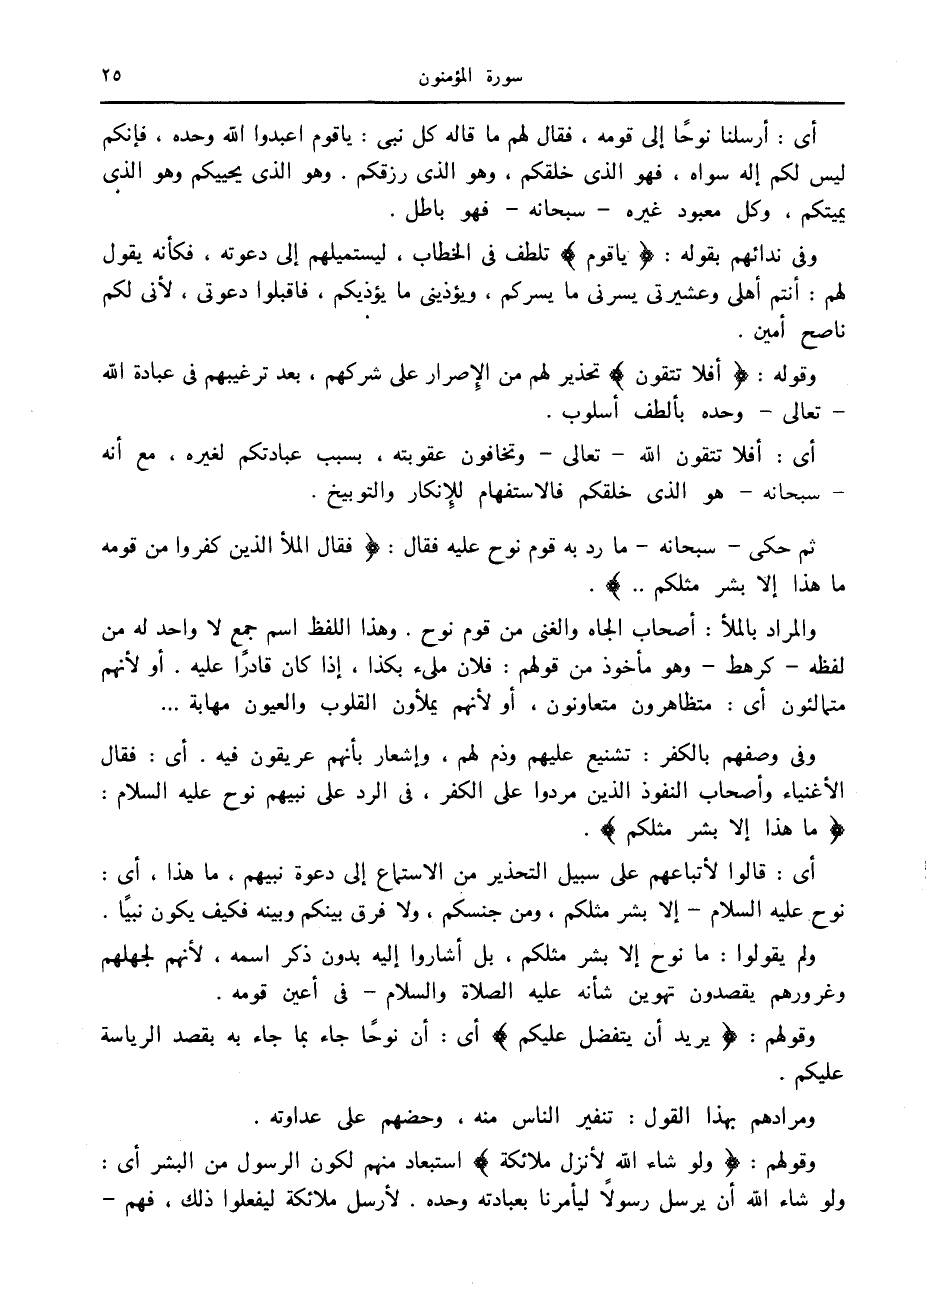 سورة المؤمنون ٢٥
أى : أرسلنا نوحًا إلى قومه ، فقال لهم ما قاله كل نبى : ياقوم اعبدوا الله وحده ، فإنكم
ليس لكم إله سواه ، فهو الذى خلقكم ، وهو الذى رزقكم . وهو الذى يحييكم وهو الذى
يميتكم ، وكل معبود غيره – سبحانه – فهو باطل .
وفى ندائهم بقوله : ﴿ ياقوم ﴾ تلطف فى الخطاب ، ليستميلهم إلى دعوته ، فكأنه يقول
لهم : أنتم أهلى وعشيرتى يسرنى ما يسركم ، ويؤذينى ما يؤذيكم ، فاقبلوا دعوتى ، لأنى لكم
ناصح أمين .
وقوله : ﴿ أفلا تتقون ﴾ تحذير لهم من الإصرار على شركهم ، بعد ترغيبهم فى عبادة الله
– تعالى – وحده بألطف أسلوب .
أى : أفلا تتقون الله – تعالى – وتخافون عقوبته ، بسبب عبادتكم لغيره ، مع أنه
– سبحانه – هو الذى خلقكم فالاستفهام للإنكار والتوبيخ .
ثم حكى – سبحانه – ما رد به قوم نوح عليه فقال : ﴿ فقال الملأ الذين كفروا من قومه
ما هذا إلا بشر مثلكم .. ﴾ .
والمراد بالملأ : أصحاب الجاه والغنى من قوم نوح . وهذا اللفظ اسم جمع لا واحد له من
لفظه – كرهط – وهو مأخوذ من قولهم : فلان ملىء بكذا ، إذا كان قادرًا عليه . أو لأنهم
متمالئون أى : متظاهرون متعاونون ، أو لأنهم يملأون القلوب والعيون مهابة ...
وفى وصفهم بالكفر : تشنيع عليهم وذم لهم ، وإشعار بأنهم عريقون فيه . أى : فقال
الأغنياء وأصحاب النفوذ الذين مردوا على الكفر ، فى الرد على نبيهم نوح عليه السلام :
﴿ ما هذا إلا بشر مثلكم ﴾ .
أى : قالوا لأتباعهم على سبيل التحذير من الاستماع إلى دعوة نبيهم ، ما هذا ، أى :
نوح عليه السلام – إلا بشر مثلكم ، ومن جنسكم ، ولا فرق بينكم وبينه فكيف يكون نبيًا .
ولم يقولوا : ما نوح إلا بشر مثلكم ، بل أشاروا إليه بدون ذكر اسمه ، لأنهم لجهلهم
وغرورهم يقصدون تهوين شأنه عليه الصلاة والسلام – فى أعين قومه .
وقولهم : ﴿ يريد أن يتفضل عليكم ﴾ أى : أن نوحًا جاء بما جاء به بقصد الرياسة
عليكم .
ومرادهم بهذا القول : تنفير الناس منه ، وحضهم على عداوته .
وقولهم : ﴿ ولو شاء الله لأنزل ملائكة ﴾ استبعاد منهم لكون الرسول من البشر أى :
ولو شاء الله أن يرسل رسولًا ليأمرنا بعبادته وحده . لأرسل ملائكة ليفعلوا ذلك ، فهم –